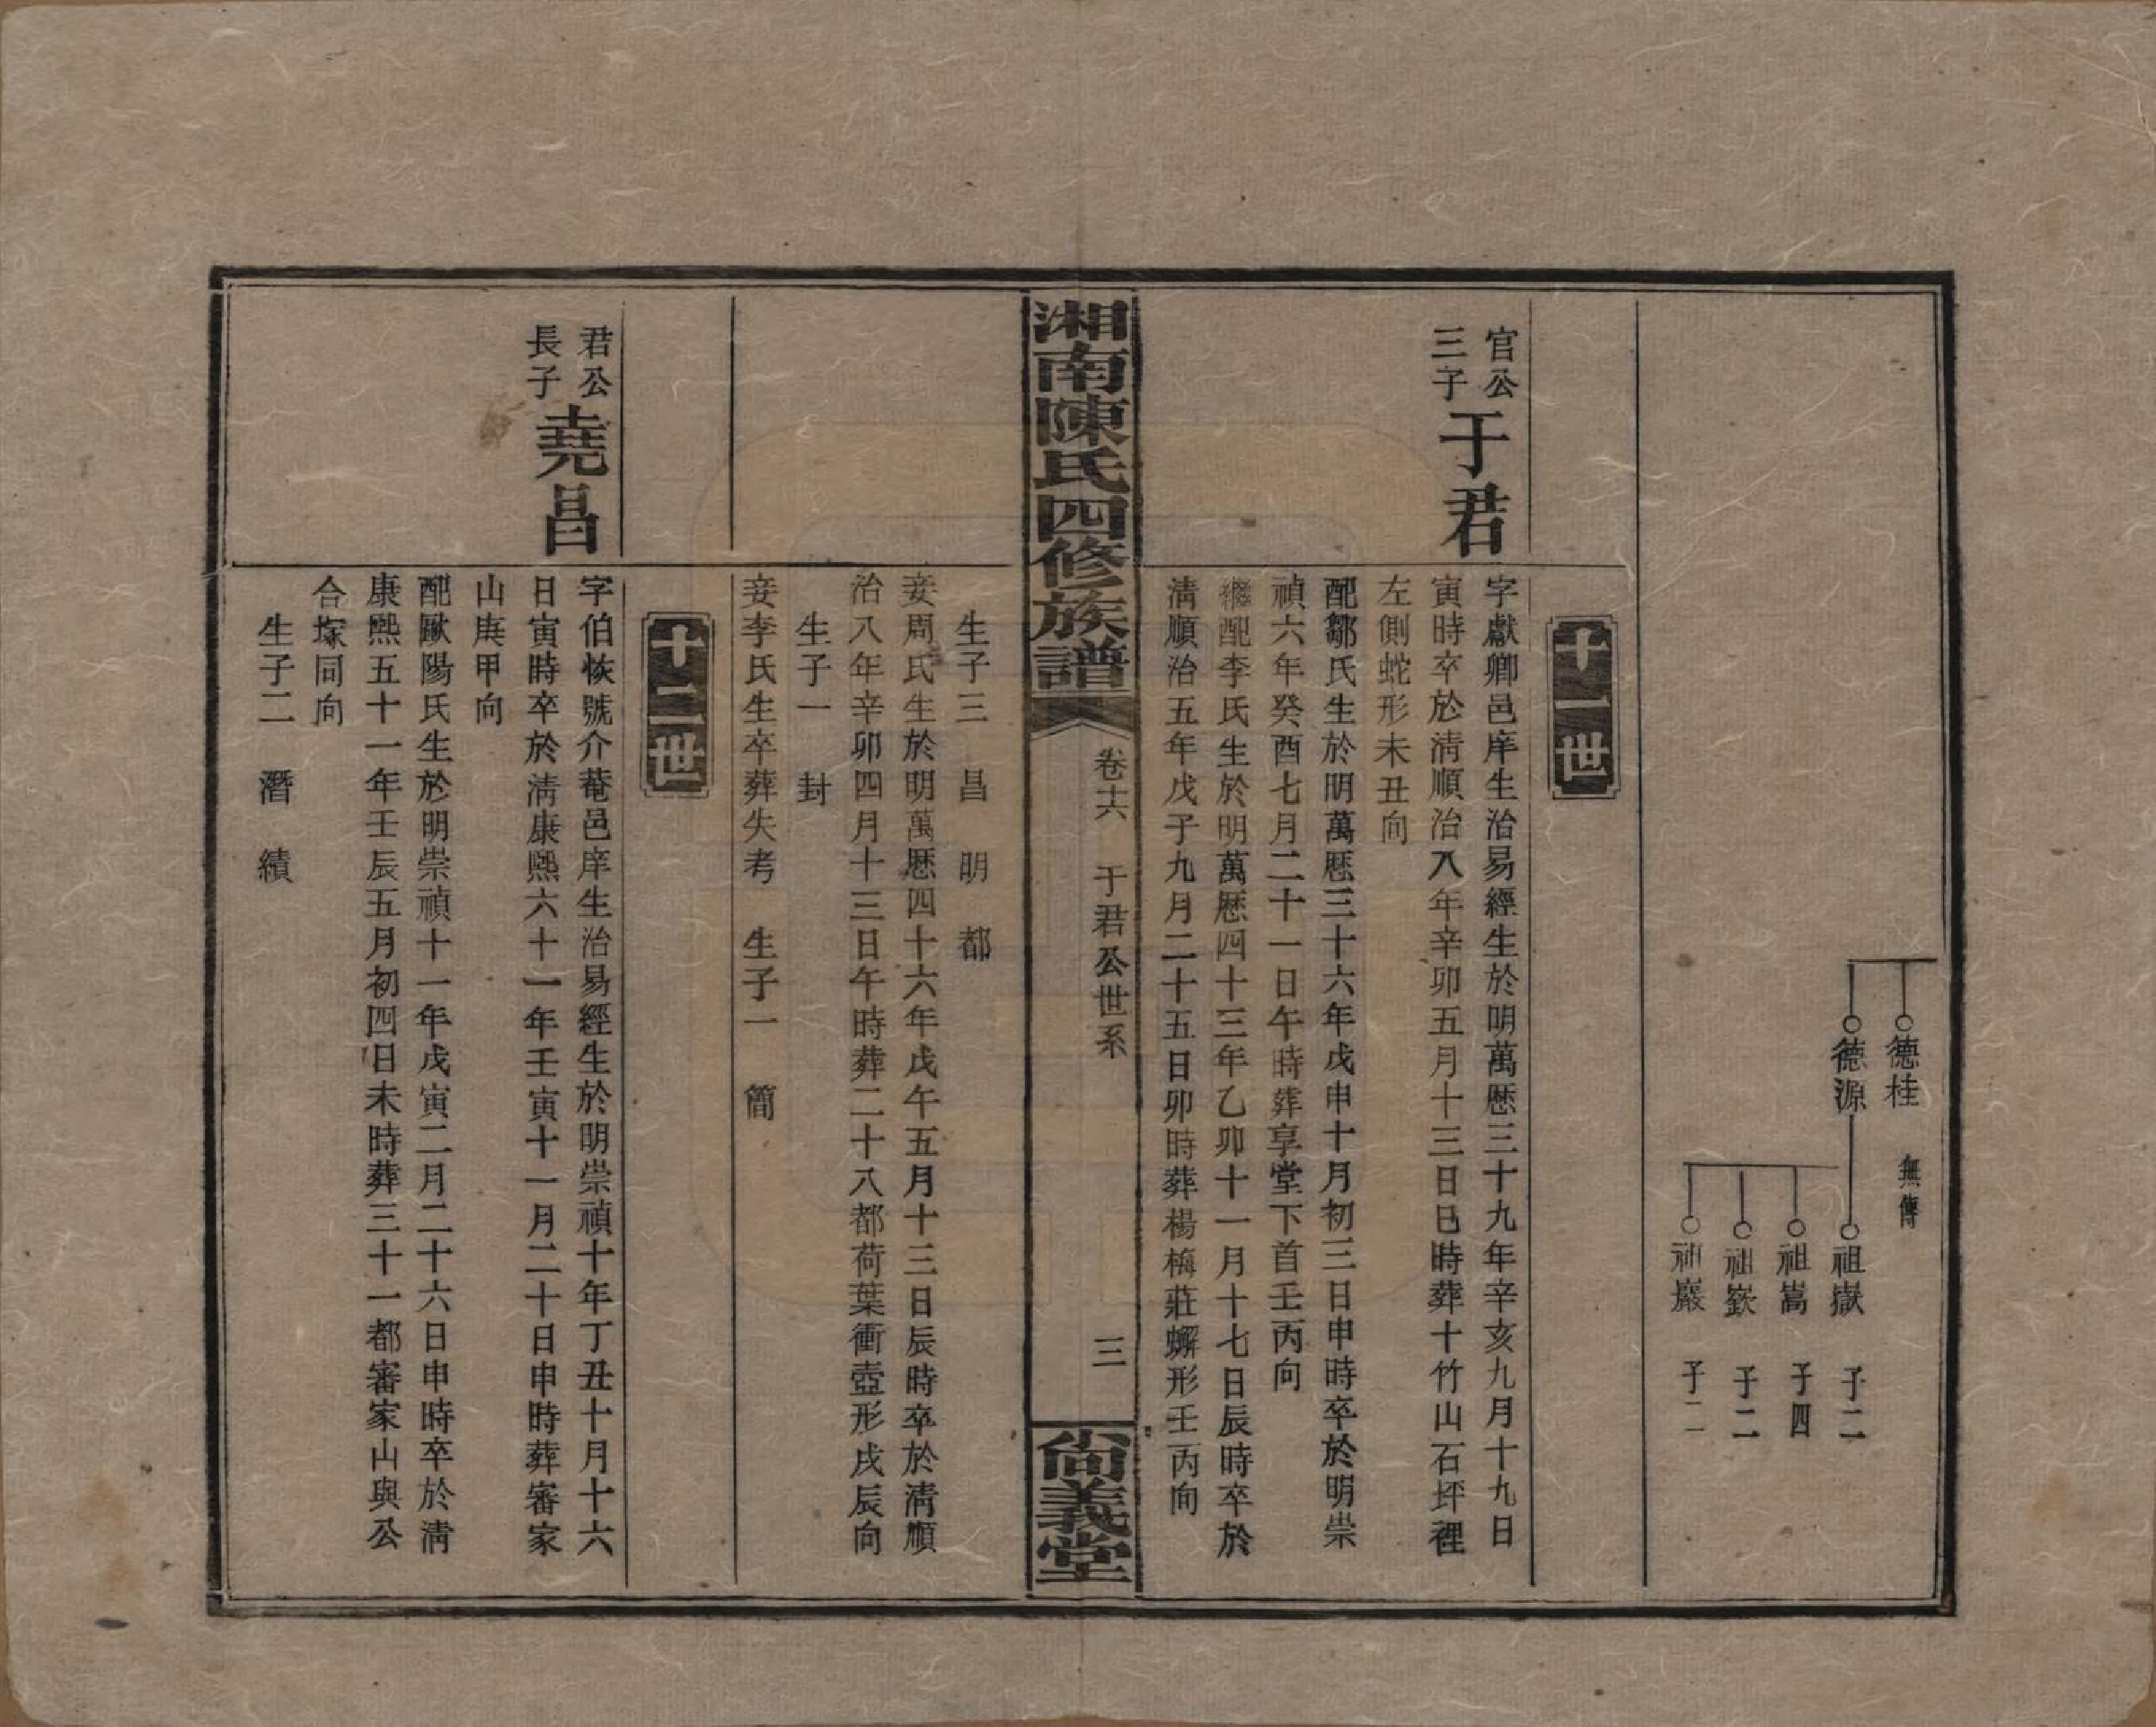 德桂 無傳
德源
祖嶽 子二
祖嵩 子四
祖嶔 子二
祖巖 子二
十一世
官公
三子
于君
字獻卿邑庠生治易經生於明萬歷三十九年辛亥九月十九日
寅時卒於清順治八年辛卯五月十三日巳時葬十竹山石坪裡
左側蛇形未丑向
配鄒氏生於明萬歷三十六年戊申十月初三日申時卒於明崇
禎六年癸酉七月二十一日午時葬享堂下首壬丙向
繼配李氏生於明萬歷四十三年乙卯十一月十七日辰時卒於
清順治五年戊子九月二十五日卯時葬楊梅莊蠏形壬丙向
湘南陳氏四修族譜
卷十六 于君公世系
三
尙義堂
生子三 昌 明 都
妾周氏生於明萬歷四十六年戊午五月十三日辰時卒於清順
治八年辛卯四月十三日午時葬二十八都荷葉衝壺形戌辰向
生子一 封
妾李氏生卒葬失考 生子一 簡
十二世
君公
長子
堯昌
字伯恢號介菴邑庠生治易經生於明崇禎十年丁丑十月十六
日寅時卒於清康熙六十一年壬寅十一月二十日申時葬審家
山庚甲向
配歐陽氏生於明崇禎十一年戊寅二月二十六日申時卒於清
康熙五十一年壬辰五月初四日未時葬三十一都審家山與公
合塚同向
生子二 潛 績